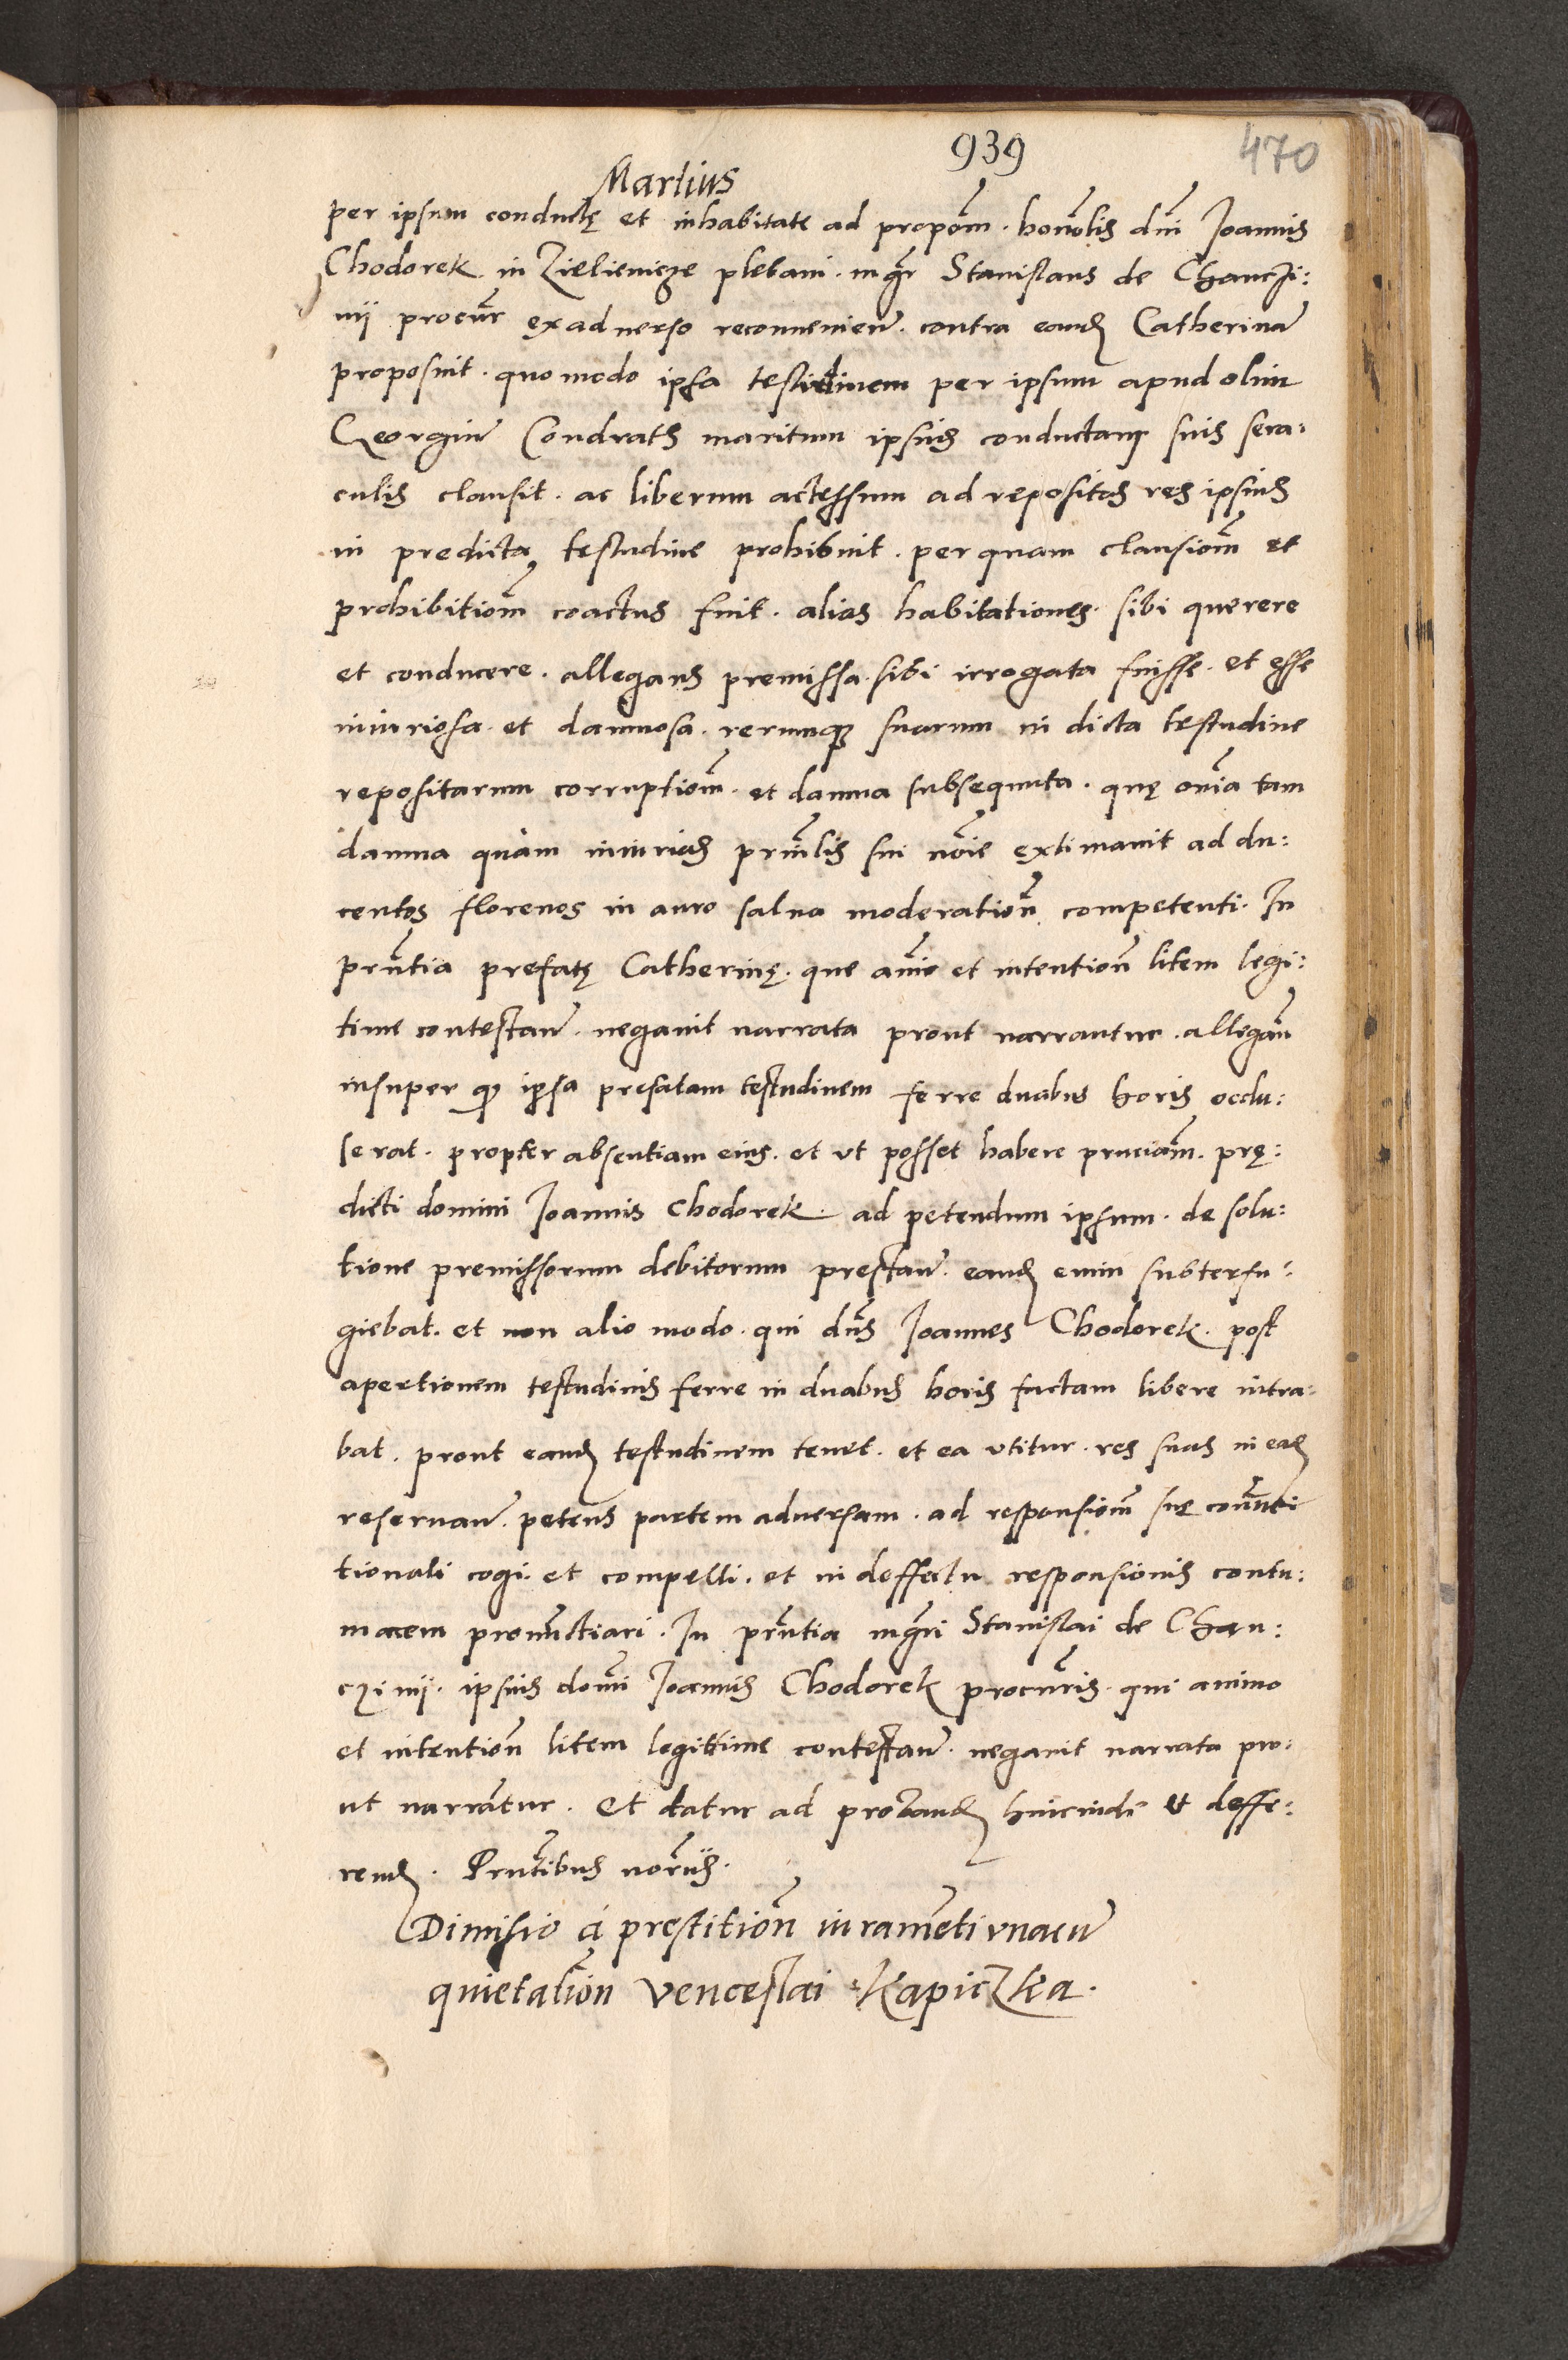 939
470
Martius
per ipsum conductę et inhabitate ad propom̃. honolis dnĩ Joannis
Chodorek in Zielienicze plebani. mgr̃ Stanislaus de Chanczi:
nij procur̃ exadverso reconvenien̄. contra eand Catherinā
proposuit. quomodo ipsa testudinem per ipsum apud olim
Georgiū Condrath maritum ipsius conductam suis sera:
culis clausit. ac liberum actessum ad repositas res ipsius
in predicta testudine prohibuit. per quam clausiom̃ et
prohibitiom̃ coactus fuit. alias habitationes sibi querere
et conducere. allegans premissa sibi irrogata fuisse. et esse
iniuriosa et damnosa. rerumq̃ suarum in dicta testudine
repositarum corruptiom̃. et damna subsequuta. quę om̃ia tam
damna quàm iniurias prin̄lis sui noĩe extimavit ad du:
centos florenos in auro salva moderation̄ competenti. In
prn̄tia prefatę Catherinę. que aiõ et intention̄ litem legi:
time contestan̄. negavit narrata prout narrantur. allegan̄
insuper q̃ ipsa prefatam testudinem ferre duabus horis occlu:
serat. propter absentiam eius. et ut posset habere prn̄ciam̄. prę:
dicti domini Joannis Chodorek. ad petendum ipsum. de solu:
tione premissorum debitorum prestan̄. eand enim subterfu:
giebat. et non alio modo. qui dn̄s Joannes Chodorek. post
apertionem testudinis ferre in duabus horis factam libere intra:
bat. prout eand testudinem tenet. et ea utitur. res suas in ead
reservan̄. petens partem adversam. ad responsiom̄ suę conven̄
tionali cogi. et compelli. et in deffectu responsionis contu:
macem pronūctiari. In prn̄tia mgr̃i Stanislai de Chan:
czinij. ipsius domi Joannis Chodorek procur̃is. qui animo
et intention̄ litem legittime contestan̄. negavit narrata pro:
ut narrãtur. Et datur ad proband hincindè et deffe:
rend. Prn̄tibus noriis.
Dimisio à prestition̄ iuramẽti vnacū
quietatiõn Venceslai Kapiczka.